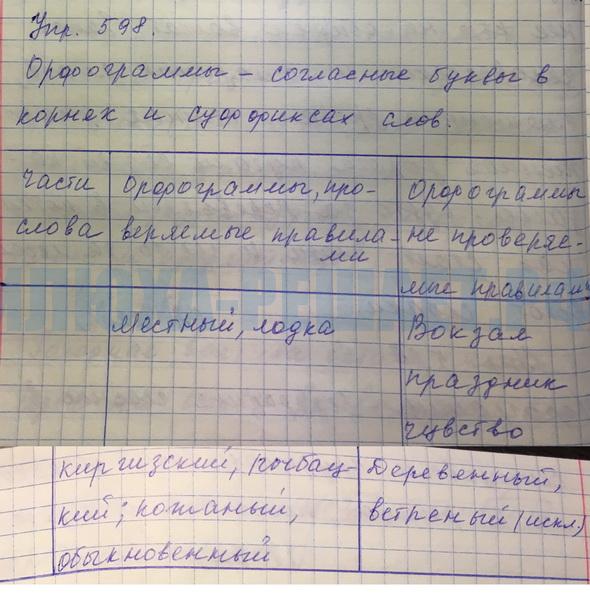 Упр. 598.
Орфограммы – согласные буквы в
корнях и суффиксах слов.
части
слова
Орфограммы, про-
веряемые правила-
ми
Орфограммы
не проверяе-
мые правилам
Местный, лодка
Вокзал
праздник
чувство
киргизский, рыбац-
кий; кожаный,
обыкновенный
Деревянный,
ветреный (искл.)